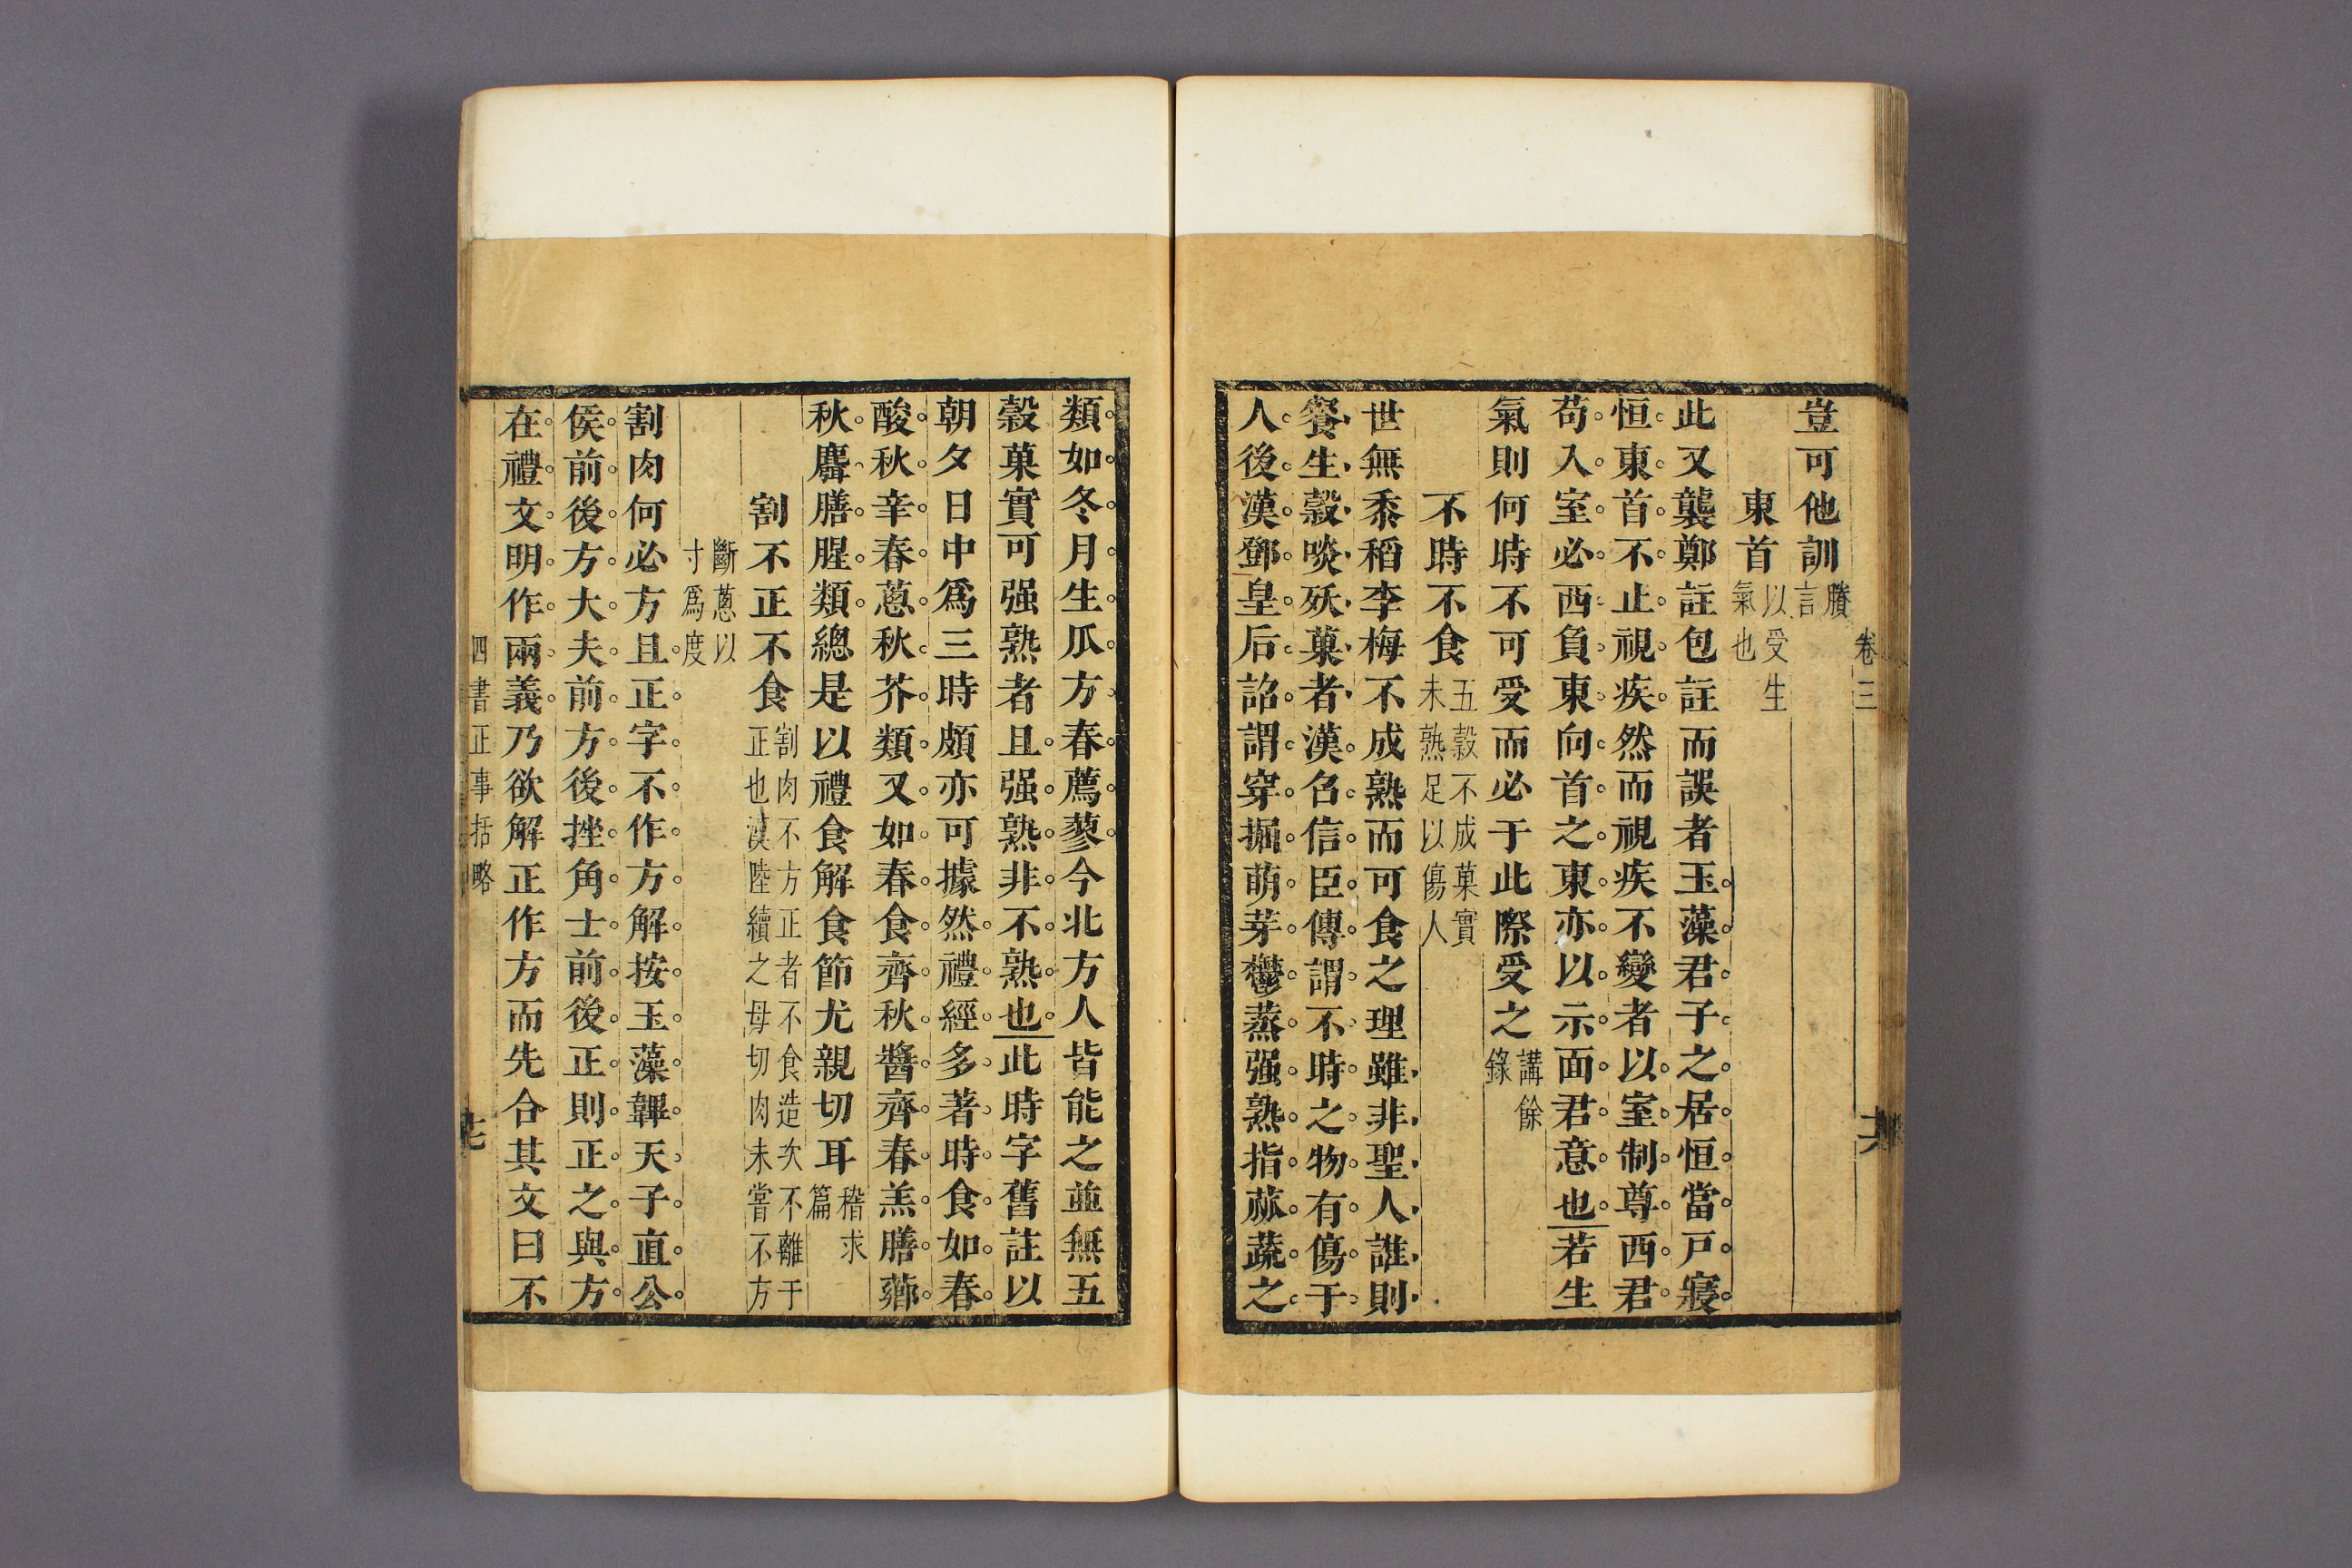 卷三
十六
豈可他訓賸言
東首以受生氣也
此又襲鄭註包註而誤者玉藻君子之居恒當戸寢
恒東首不止視疾然而視疾不變者以室制尊西君
苟入室必西負東向首之東亦以示面君意也若生
氣則何時不可受而必于此際受之講餘錄
不時不食五穀不成菓實未熟足以傷人
世無黍稻李梅不成熟而可食之理雖非聖人誰則
餐生穀啖殀菓者漢召信臣傳謂不時之物有傷于
人後漢鄧皇后詔謂穿掘萌芽鬱蒸强熟指菰蔬之
類如冬月生瓜方春薦蓼今北方人皆能之並無五
穀菓實可强熟者且强熟非不熟也此時字舊註以
朝夕日中爲三時頗亦可據然禮經多著時食如春
酸秋辛春蔥秋芥類又如春食齊秋醬齊春羔膳薌
秋麛膳腥類總是以禮食解食節尤親切耳稽求篇
割不正不食割肉不方正者不食造次不離于正也漢陸續之母切肉未嘗不方
斷蔥以寸爲度
割肉何必方且正字不作方解按玉藻韠天子直公
侯前後方大夫前方後挫角士前後正則正之與方
在禮文明作兩義乃欲解正作方而先合其文曰不
四書正事括略